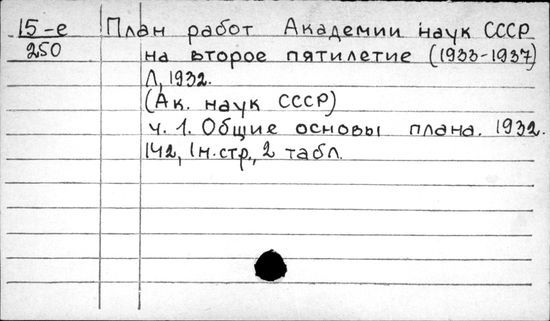 15-е План работ Академии наук СССР
250 на второе пятилетие (1933-1937)
Л, 1932.
(Ак. наук СССР)
ч. 1. Общие основы плана. 1932.
142, 1н.стр., 2 табл.